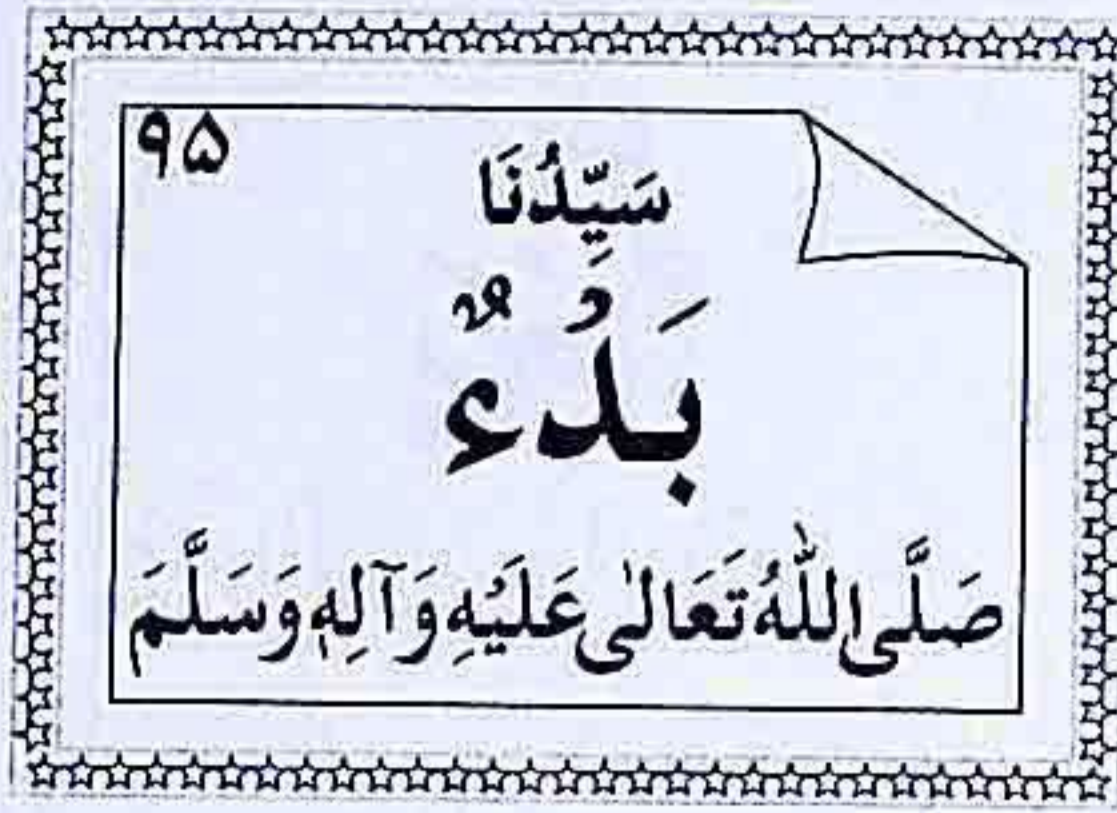 ۹۵
سَيِّدُنَا
بَدْءٌ
صَلَّى اللّٰهُ تَعَالٰى عَلَيْهِ وَآلِهٖ وَسَلَّمَ